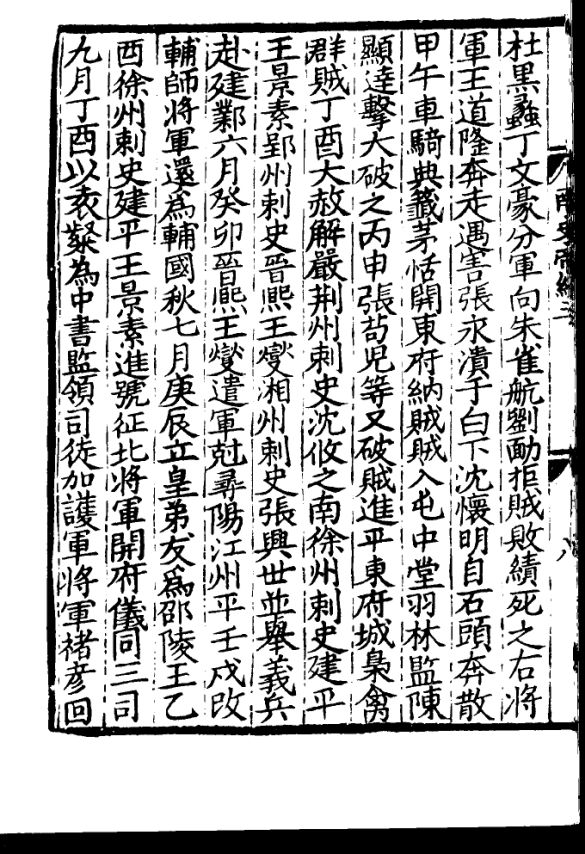 杜黑蠡丁文豪分軍向朱雀航劉勔拒賊敗績死之右將
軍王道隆奔走遇害張永潰于白下沈懷明自石頭奔散
甲午車騎典籤茅恬開東府納賊賊入屯中堂羽林監陳
顯達擊大破之丙申張茍兒等又破賊進平東府城梟禽
群賊丁酉大赦解嚴荆州刺史沈攸之南徐州刺史建平
王景素郢州刺史晉熙王燮湘州刺史張興世並舉義兵
赴建鄴六月癸卯晉熙王燮遣軍尅尋陽江州平壬戌改
輔師將軍還爲輔國秋七月庚辰立皇弟友爲邵陵王乙
酉徐州刺史建平王景素進號征北將軍開府儀同三司
九月丁酉以袁粲為中書監領司徒加護軍將軍褚彦回